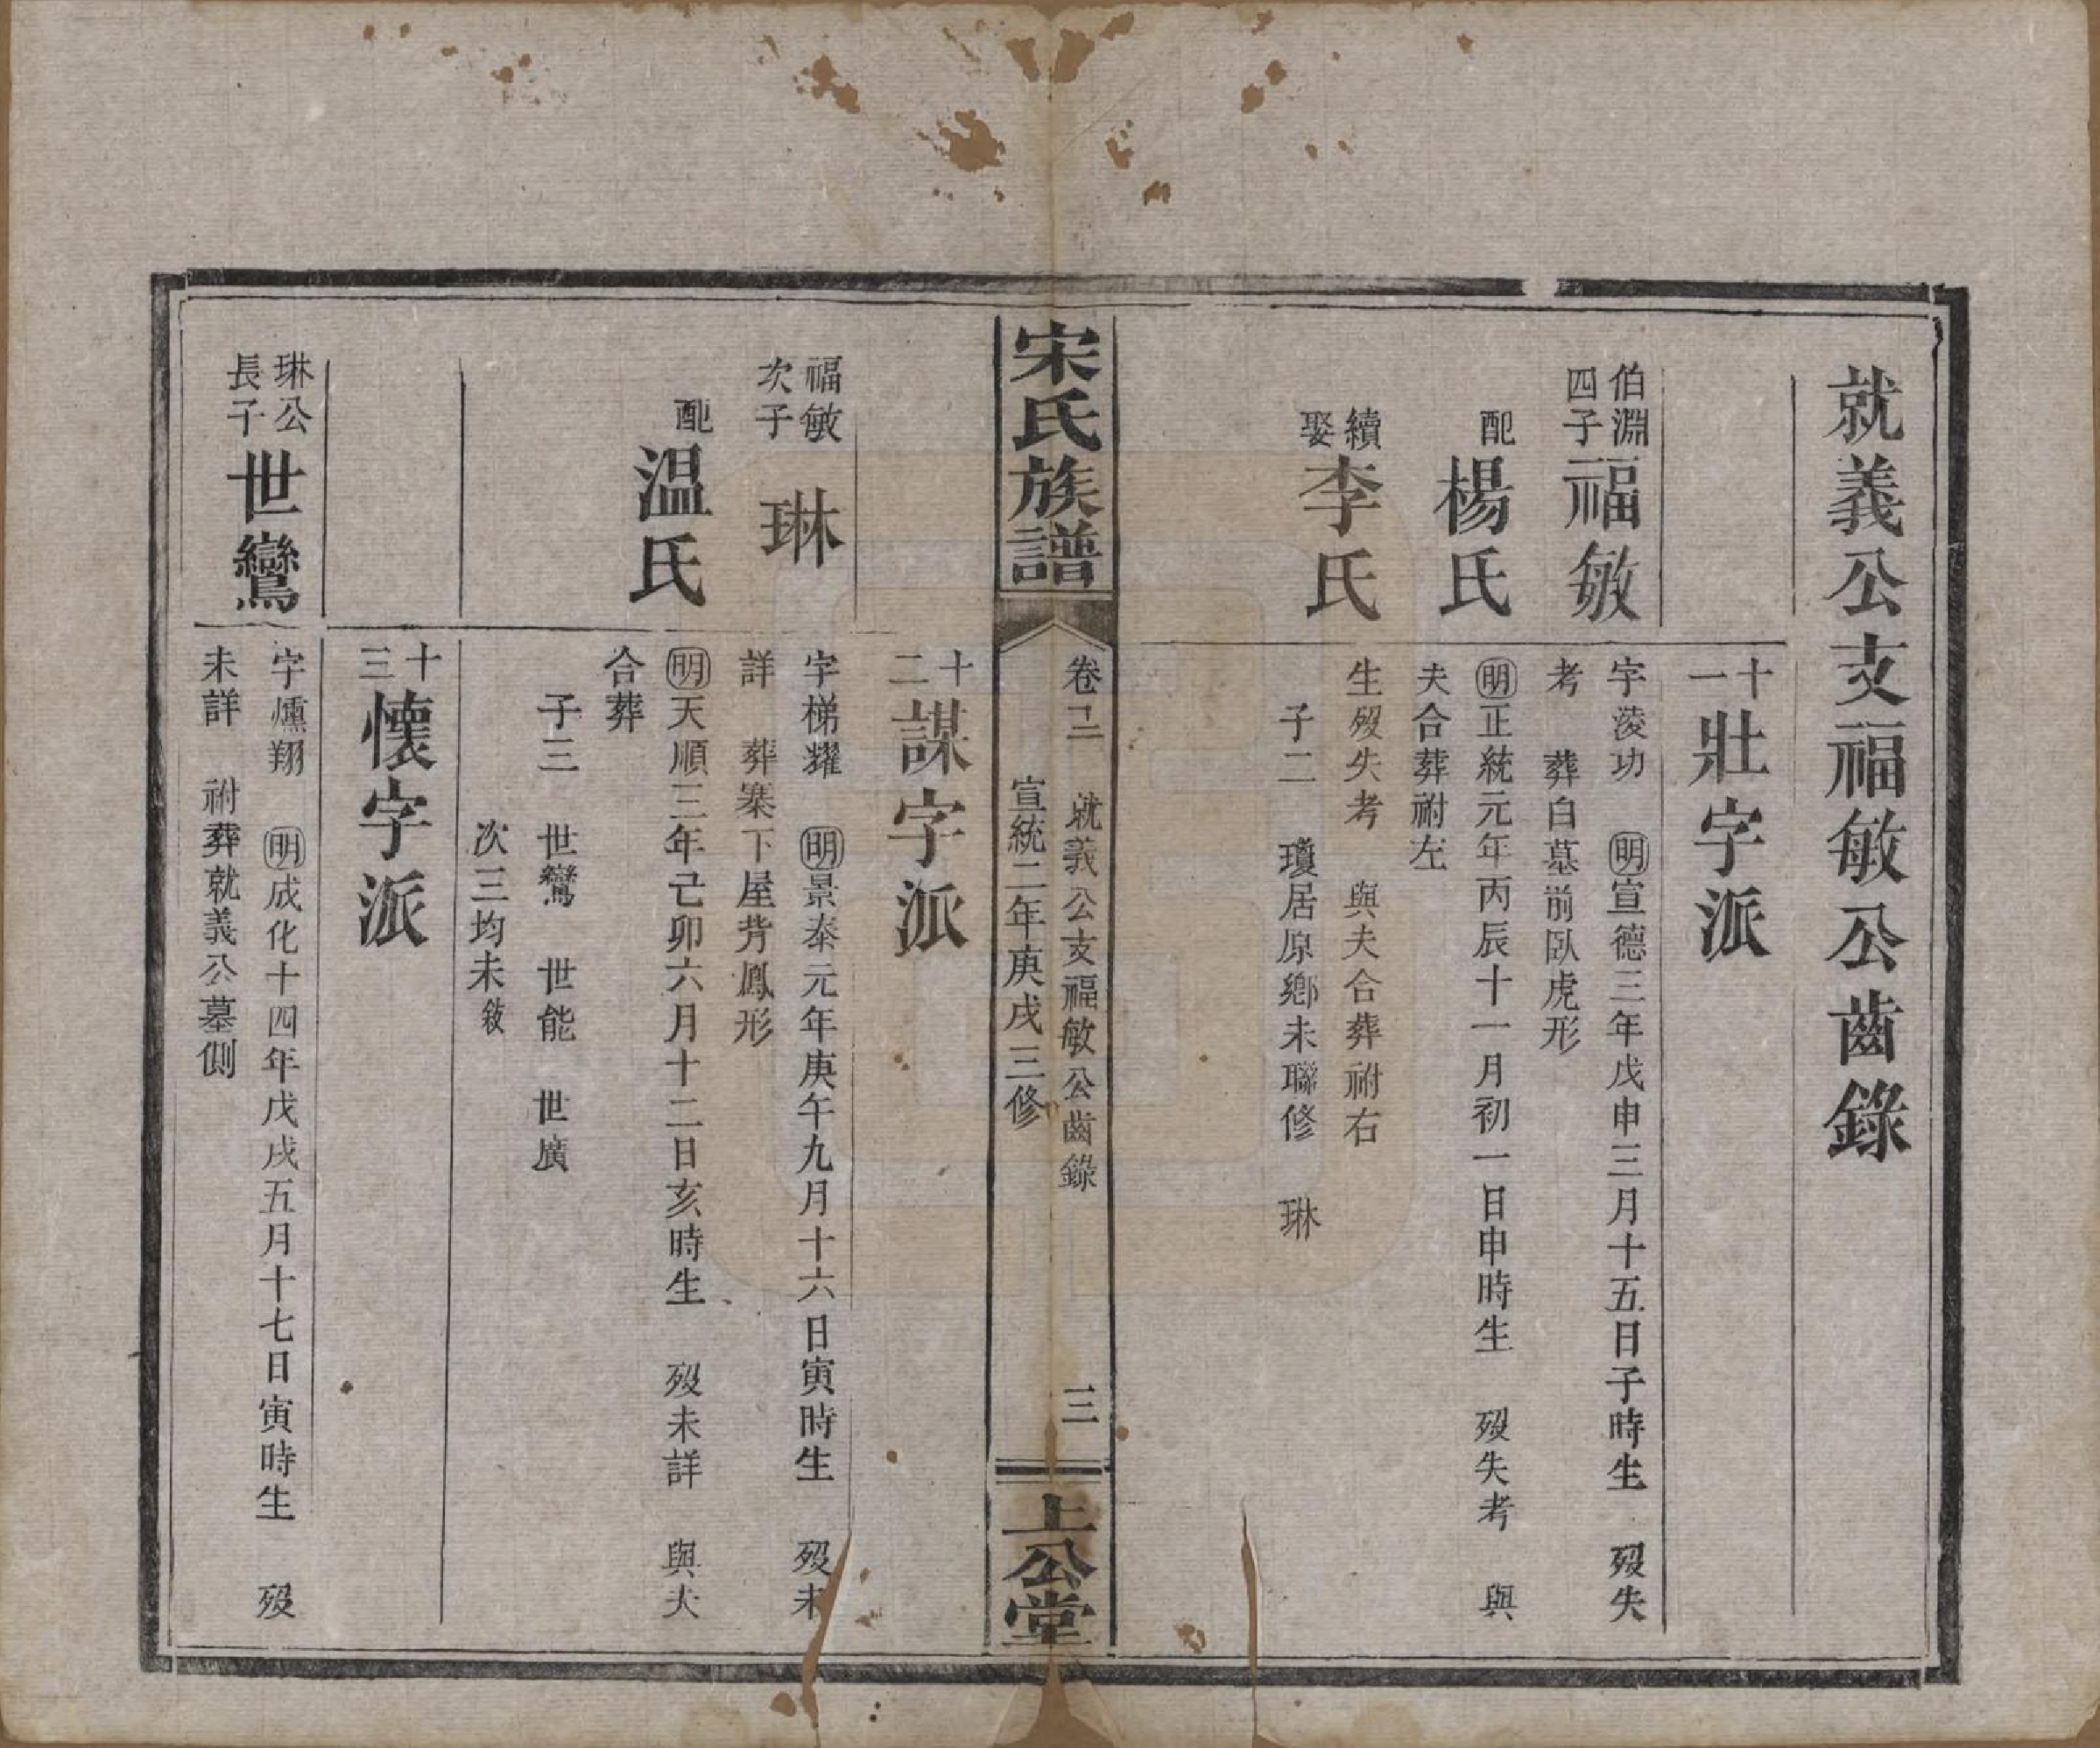 就義公支福敏公齒錄
十一 壯字派
伯淵四子 福敏
字淩功 明宣德三年戊申三月十五日子時生 歿失
考 葬白墓前臥虎形
配 楊氏
明正統元年丙辰十一月初一日申時生 歿失考 與
夫合葬祔左
續娶 李氏
生歿失考 與夫合葬祔右
子二 瓊居原鄉未聯修 琳
宋氏族譜
卷二 就義公支福敏公齒錄 三
宣統二年庚戌三修
上公堂
十二 謀字派
福敏次子 琳
字梯耀 明景泰元年庚午九月十六日寅時生 歿未
詳 葬寨下屋背鳳形
配 温氏
明天順三年己卯六月十二日亥時生 歿未詳 與夫
合葬
子三 世鸞 世能 世廣
次三均未敘
十三 懷字派
琳公長子 世鸞
字燻翔 明成化十四年戊戌五月十七日寅時生 歿
未詳 祔葬就義公墓側